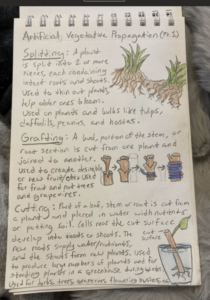 Artificial Vegetative Propagation (Pt.1)
Splitting: A plant
is split into 2 or more
pieces, each containing
intact roots and shoots.
Used to thin out plants
help older ones bloom.
Used on plants and bulbs like tulips,
daffodils, peonies, and hostas.
Grafting: A bud, portion of the stem, or
root section is cut from one plant and
joined to another.
Used to create desirable
or new fruit/etc. Used
for fruit and nut trees
and grapevines.
Cutting: Part of a leaf, stem or root is cut from
a plant and placed in water with nutrients
or potting soil. Cells near the cut surface
develop into roots or shoots. The
new roots supply water/nutrients,
and the shoots form new plants. Used
to produce large numbers of plants and for
starting plants in a greenhouse during winter.
Used for
cut
surface